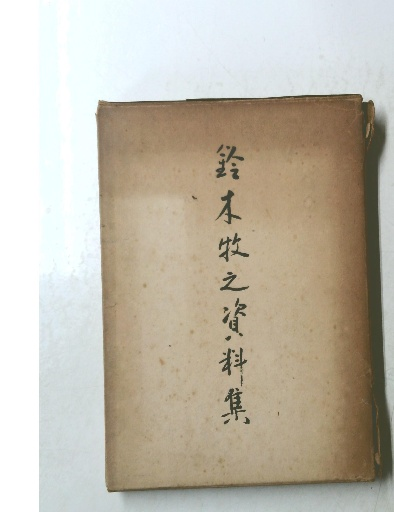 鈴木牧之資料集